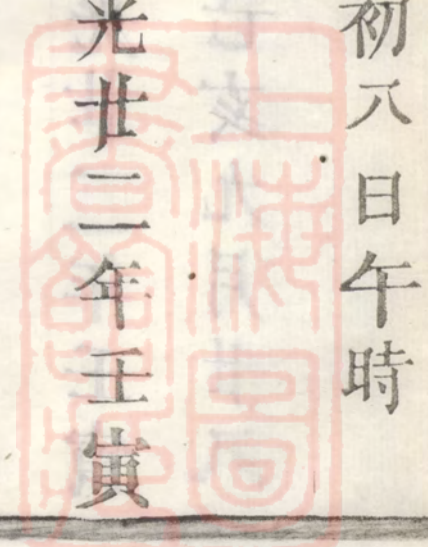 初八日午時
光廿二年壬寅
上海圖
書館藏